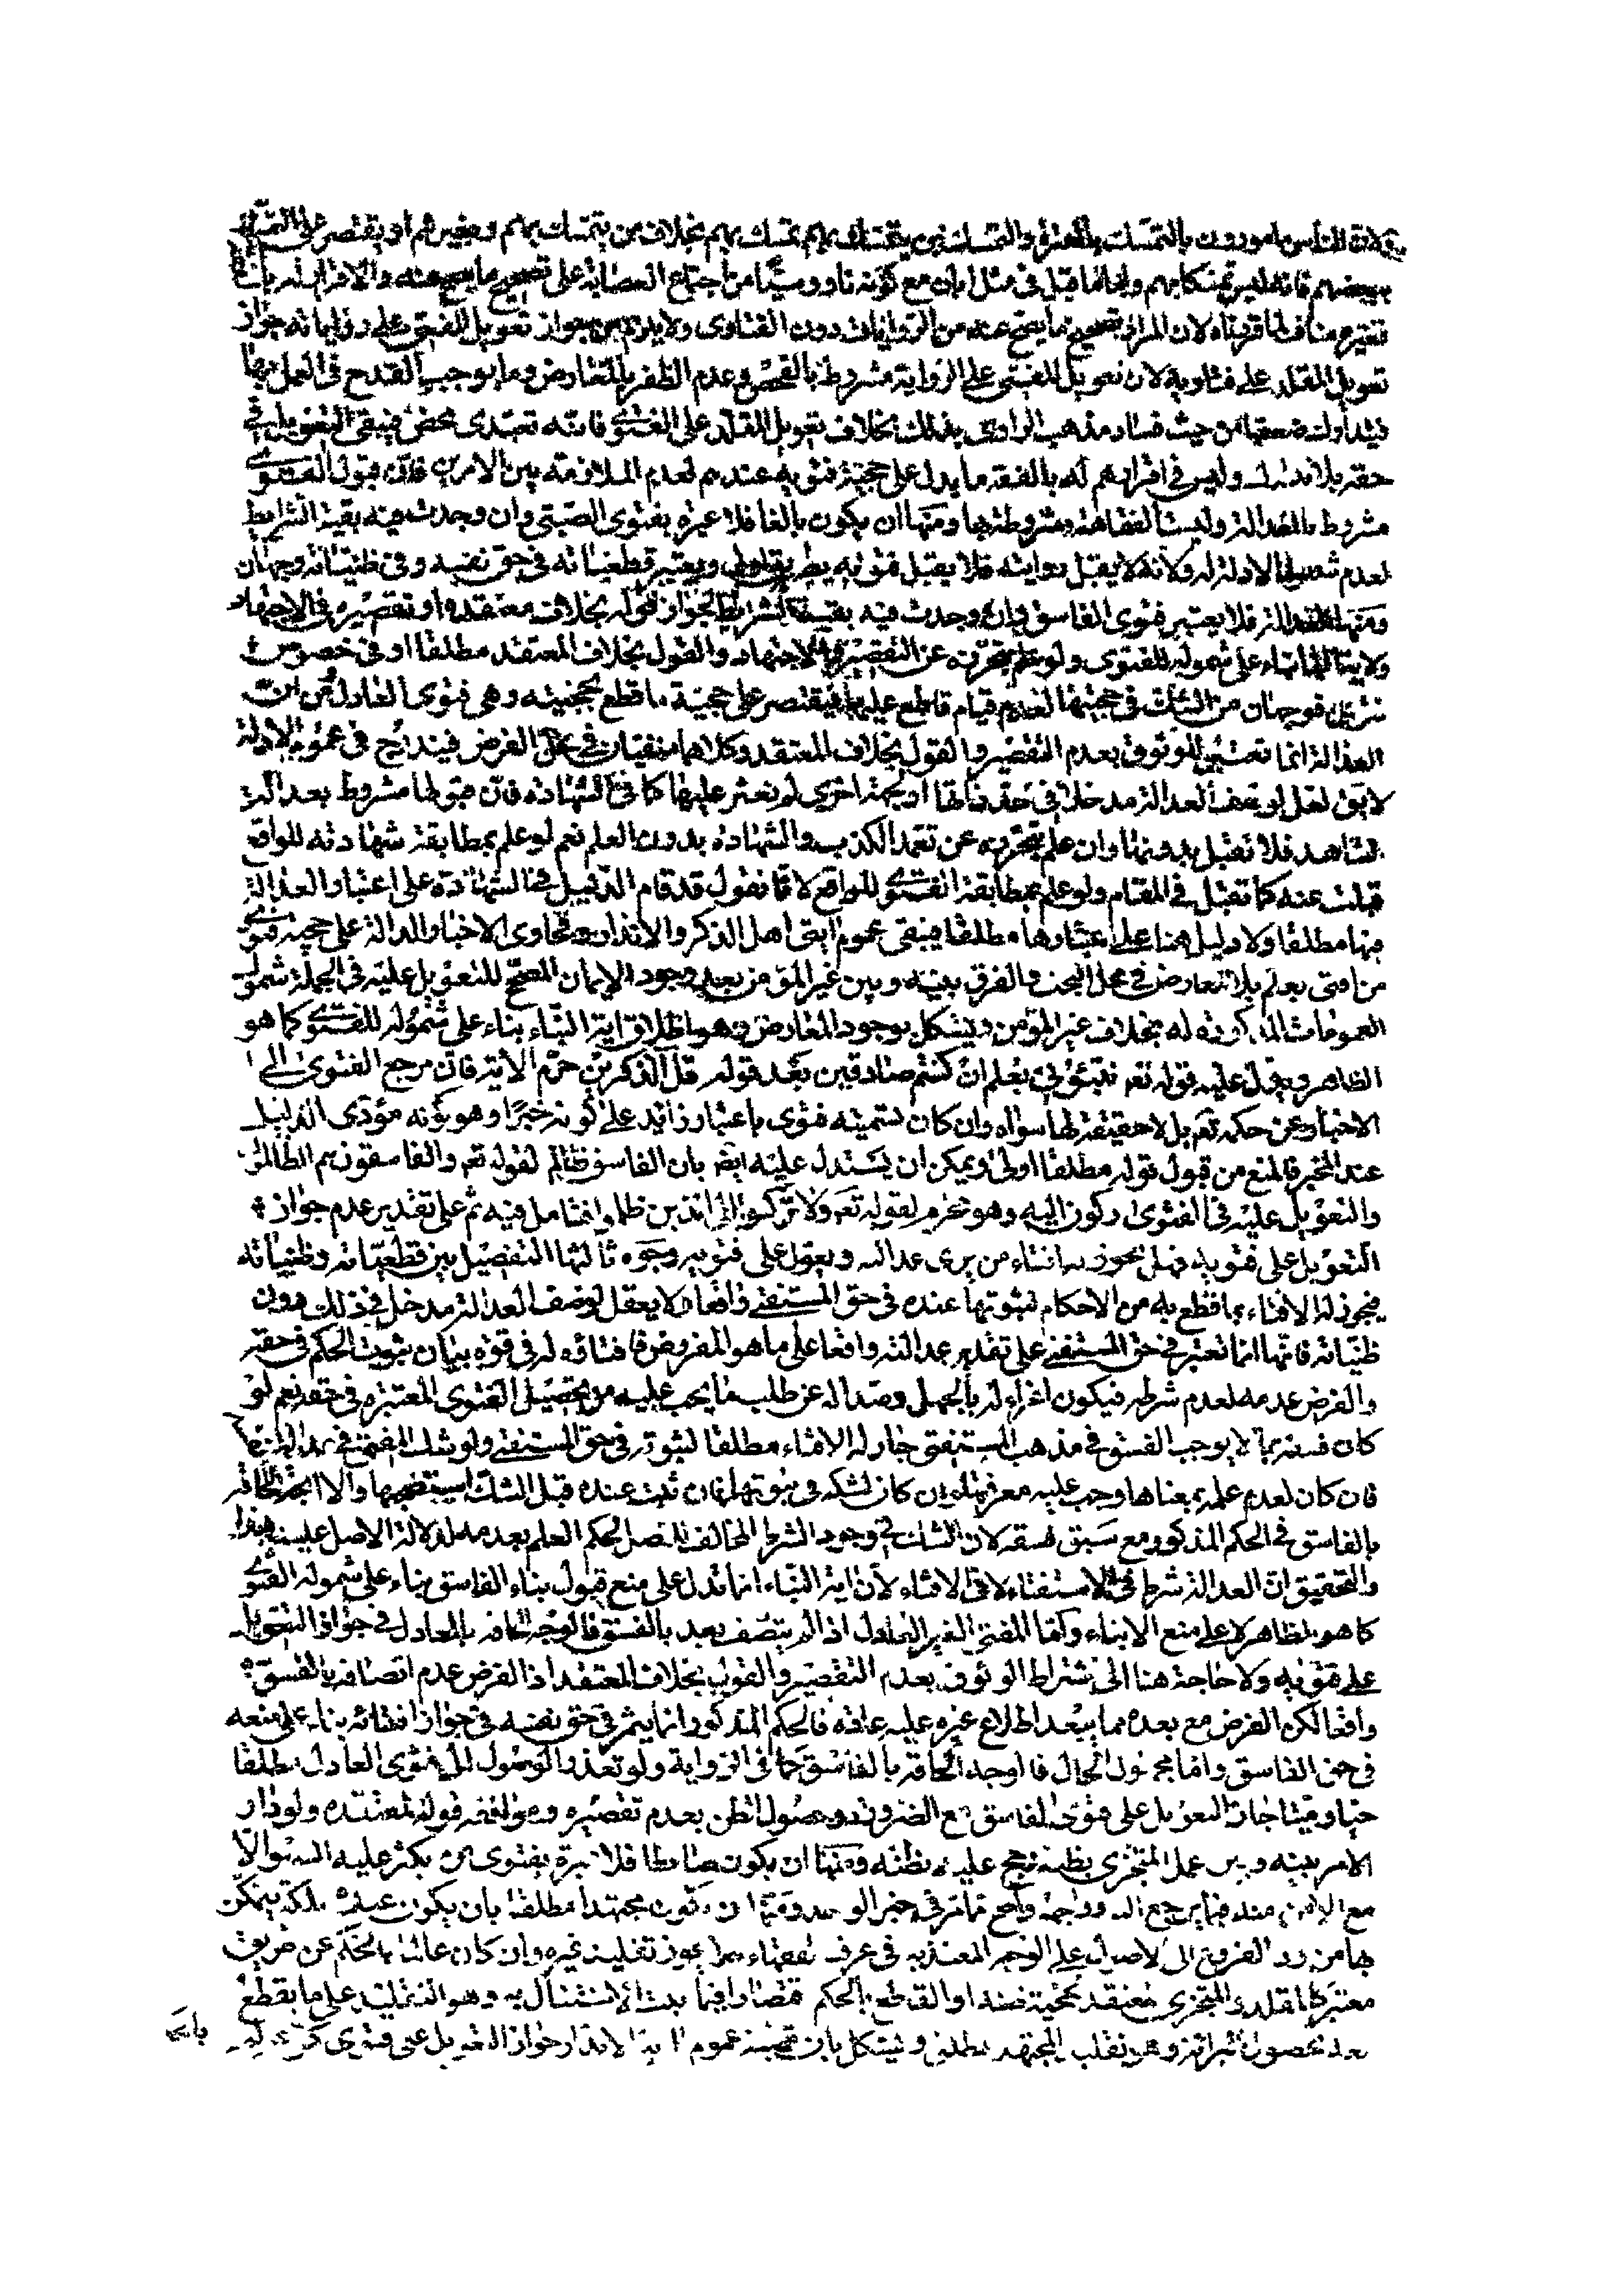 ولان الناس مامورون بالتمسك بالعترة والتمسك بمن يتمسك بهم تمسك بهم بخلاف من يتمسك بهم وبغيرهم او يقتصر على التمسك
ببعضهم فانه ليس تمسكا بهم وانما قيل في مثل ابان مع كونه ناووسيا من اجماع العصابة على تصحيح ما يصح عنه والاقرار له بالفقه
غير مناف لما قررناه لان المراد تصحيح ما يصح عنه من الروايات دون الفتاوى ولا يلزم من جواز تعويل المفتي على رواياته جواز
تعويل المقلد على فتاويه لان تعويل المفتي على الرواية مشروط بالفحص وعدم الظفر بالمعارض وما يوجب القدح في العمل بها
فيتدارك ضعفها من حيث فساد مذهب الراوي بذلك بخلاف تعويل المقلد على الفتوى فانه تعبدى محض فيبقى التعويل في
حقه بلا تدارك وليس في اقرارهم له بالفقه ما يدل على حجية فتويه عندهم لعدم الملازمة بين الامرين فان قبول الفتوى
مشروط بالعدالة وليست الفقاهة مشروطة بها ومنها ان يكون بالغا فلا عبرة بفتوى الصبي وان وجدت فيه بقية الشرايط
لعدم شمول الادلة له ولانه لا يقبل روايته فلا يقبل فتويه بطريق اولى ويعتبر قطعياته في حق نفسه وفي ظنياته وجهان
ومنها العدالة فلا يعتبر فتوى الفاسق وان وجدت فيه بقية الشرايط لجواز قوله بخلاف معتقده او تقصيره في الاجتهاد
ولاية النبأ بناء على شموله للفتوى ولو علم تحرزه عن التقصير في الاجتهاد والقول بخلاف المعتقد مطلقا او في خصوص
فوجهان من الشك في حجيتها لعدم قيام قاطع عليها فيقتصر على حجية ما قطع بحجيته وهي فتوى العادل ومن ان
العدالة انما تعتبر للوثوق بعدم التقصير والقول بخلاف المعتقد وكلاهما منفيان في محل الفرض فيندرج في عموم الادلة
لا يق لعل لوصف العدالة مدخلا في حد ذاتها او لجهة اخرى لم نعثر عليها كما في الشهادة فان قبولها مشروط بعدالة
الشاهد فلا تقبل بدونها وان علم تحرزه عن تعمد الكذب والشهادة بدون العلم نعم لو علم بمطابقة شهادته للواقع
قبلت عنه كما تقبل في المقام ولو علم بمطابقة الفتوى للواقع لانا نقول قد قام الدليل في الشهادة على اعتبار العدالة
فيها مطلقا ولا دليل هنا على اعتبارها مطلقا فيبقى عموم ايتى اهل الذكر والانذار وفحاوى الاخبار الدالة على حجية فتوى
من افتى بعلم بلا معارض في محل البحث والفرق بينه وبين غير المؤمن بعد وجود الايمان المصحح للتعويل عليه في الجملة شمول
العمومات المذكورة له بخلاف غير المؤمن ويشكل بوجود المعارض وهو اطلاق اية النبأ بناء على شموله للفتوى كما هو
الظاهر ويدل عليه قوله تعه نبئوني بعلم ان كنتم صادقين بعد قوله قل آلذكرين حرم الاية فان مرجع الفتوى الى
الاخبار عن حكمه تعه بل لا حقيقة لها سواه وان كان تسميته فتوى باعتبار زايد على كونه خبرا وهو كونه مؤدى الدليل
عند المخبر فالمنع من قبول قوله مطلقا اولى ويمكن ان يستدل عليه ايضا بان الفاسق ظالم لقوله تعه والفاسقون هم الظالمون
والتعويل عليه في الفتوى ركون اليه وهو محرم لقوله تعه ولا تركنوا الى الذين ظلموا فتامل فيه ثم على تقدير عدم جواز
التعويل على فتويه فهل يجوز له افتاء من يرى عدالته ويعول على فتويه وجوه ثالثها التفصيل بين قطعياته وظنياته
فيجوز له الافتاء بما قطع به من الاحكام لثبوتها عنده في حق المستفتى واقعا ولا يعقل لوصف العدالة مدخل في ذلك دون
ظنياته فانها انما تعتبر في حق المستفتى على تقدير عدالته واقعا على ما هو المفروض فافتاؤه له في قوة بيان ثبوت الحكم في حقه
والفرض عدمه لعدم شرطه فيكون اغراء له بالجهل وصدا له عن طلب ما يجب عليه من تحصيل الفتوى المعتبرة في حقه نعم لو
كان فسقه بما لا يوجب الفسق في مذهب المستفتى جاز له الافتاء مطلقا لثبوته في حق المستفتى ولو شك المفتى في عدالة نفسه
فان كان لعدم علمه بمعناها وجب عليه معرفتها وان كان لشكه في ثبوتها فان ثبت عنده قبل الشك استصحبها والا اتجه الحاقه
بالفاسق في الحكم المذكور مع سبق فسقه لان الشك في وجود الشرط المخالف للاصل كحكم العلم بعدمه لدلالة الاصل عليه هذا
والتحقيق ان العدالة شرط في الاستفتاء لا في الافتاء لان اية النبأ انما تدل على منع قبول نبأ الفاسق بناء على شموله الفتوى
كما هو الظاهر لا على منع الانباء واما المفتى الغير العادل اذا لم يتصف بعد بالفسق فالوجه الحاقه بالعادل في جواز التعويل
على فتويه ولا حاجة هنا الى اشتراط الوثوق بعدم التقصير والقول بخلاف المعتقد اذ الفرض عدم اتصافه بالفسق
واقعا لكن الفرض مع بعده مما يبعد اطلاع غيره عليه عادة فالحكم المذكور انما يثمر في حق نفسه في جواز افتائه بناء على منعه
في حق الفاسق واما مجهول الحال فالوجه الحاقه بالفاسق كما في الرواية ولو تعذر الوصول الى فتوى العادل مطلقا
حيا وميتا جاز التعويل على فتوى الفاسق مع الضرورة وحصول الظن بعدم تقصيره وموافقة قوله لمعتقده ولو دار
الامر بينه وبين عمل المتجزى بظنه رجح عليه بظنه ومنها ان يكون ضابطا فلا عبرة بفتوى من يكثر عليه السهو الا
مع الامن منه فيما يرجع اليه ووجهه واضح مما مر في خبر الواحد ومنها ان يكون مجتهدا مطلقا بان يكون عنده ملكة يتمكن
بها من رد الفروع الى الاصول على الوجه المعتد به في عرف الفقهاء فلا يجوز تقليد غيره وان كان عالما بالحكم عن طريق
معتبر كالمقلد والمتجزى معتقد بحجية ظنه او القاطع بالحكم قصارا فيما ثبت الاشتغال به وهو التقليد على ما يقطع
معه بحصول البرائة وهو تقليد المجتهد المطلق ويشكل بان قضية عموم اية الانذار جواز التعويل على فتوى كل